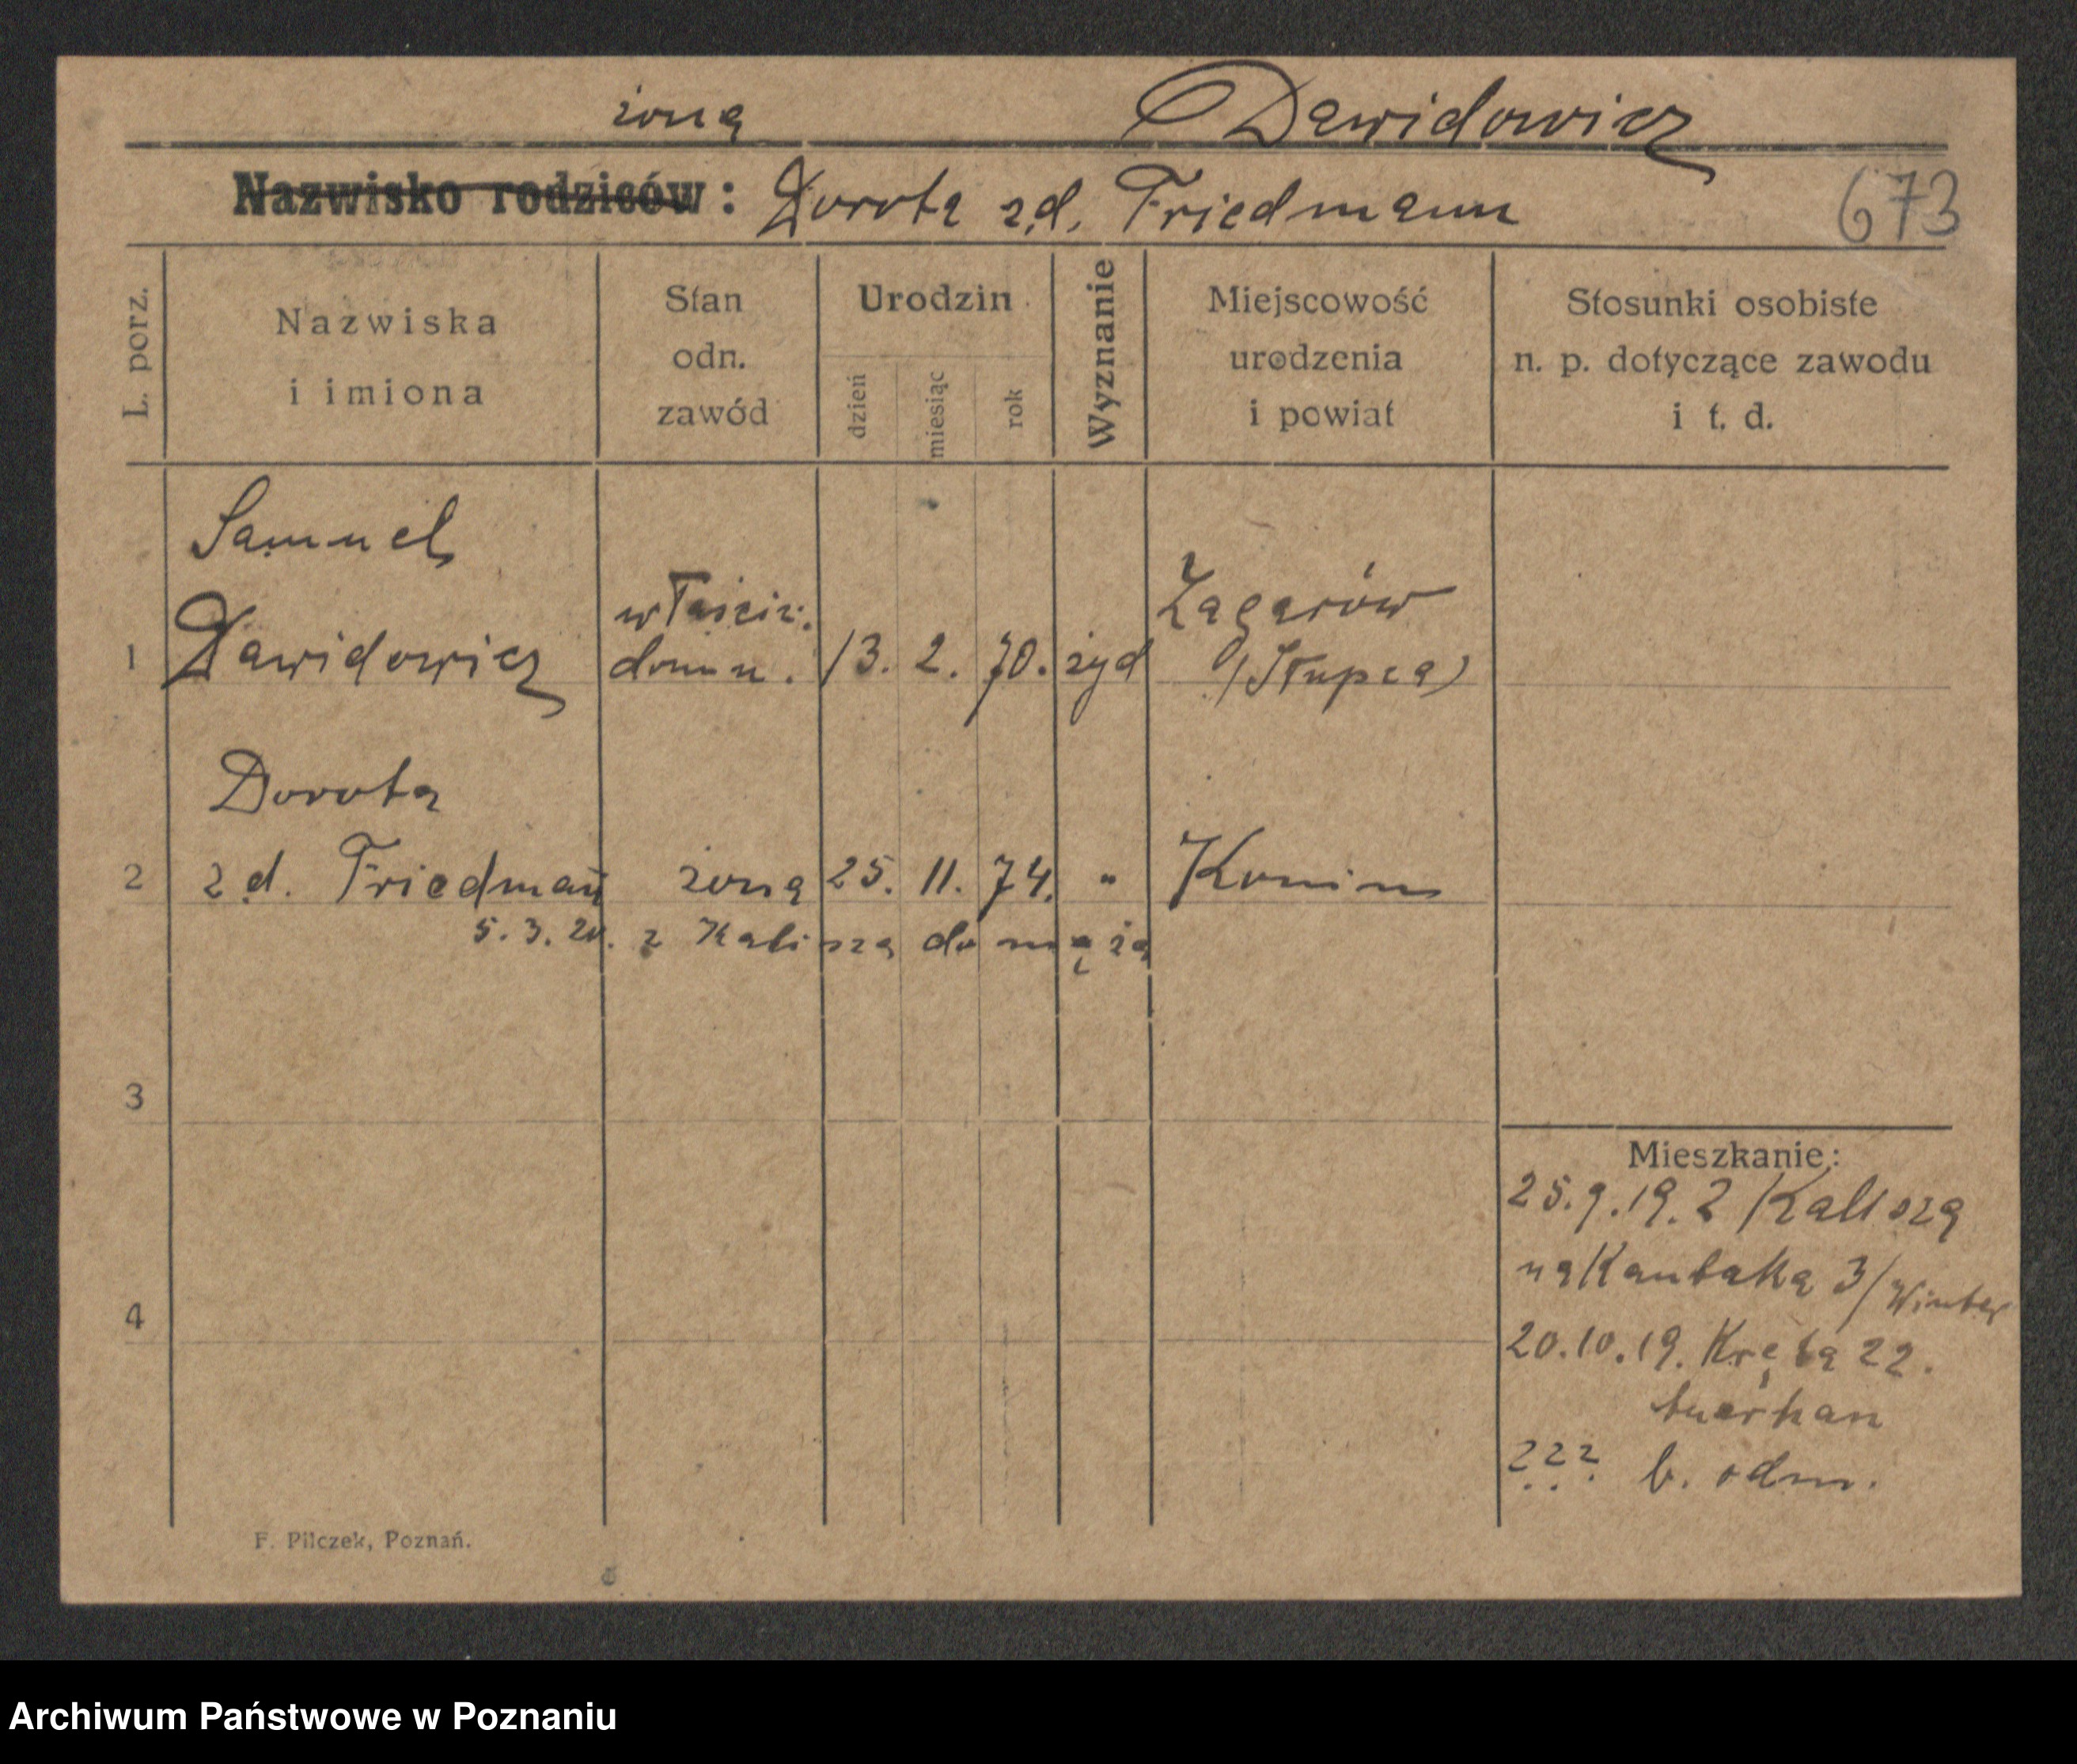 żona Dawidowicz
Nazwisko rodziców: Dorota z d. Friedmann 673
L. porz.
Nazwiska
i imiona
Stan
odn.
zawód
Urodzin
dzień
miesiąc
rok
Wyznanie
Miejscowość
urodzenia
i powiat
Stosunki osobiste
n. p. dotyczące zawodu
i t. d.
Samuel
1 Dawidowicz
właścic.
domu.
13. 2. 70. żyd
Zagarów
(Słupca)
Dorota
2 z d. Friedman̄ żona 25. 11. 74. " Konin
5. 3. 20. z Kalisza do męża
3
4
Mieszkanie:
25.9.19. z Kalisza
na Kantaka 3/ Winter
20.10.19. Kręta 22.
??? b. odm.
F. Pilczek, Poznań.
Archiwum Państwowe w Poznaniu